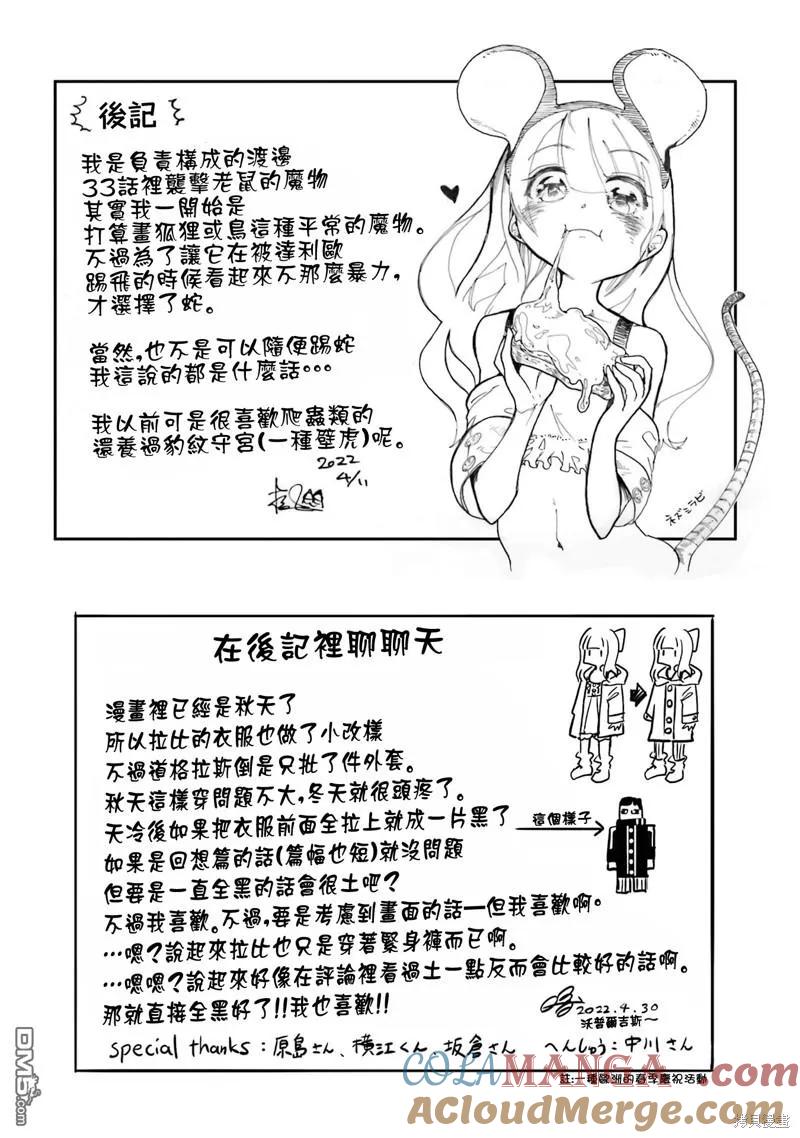 後記
我是負責構成的渡邊
33話裡襲擊老鼠的魔物
其實我一開始是
打算畫狐狸或鳥這種平常的魔物。
不過為了讓它在被達利歐
踢飛的時候看起來不那麼暴力,
才選擇了蛇。
當然,也不是可以隨便踢蛇
我這說的都是什麼話⋯
我以前可是很喜歡爬蟲類的
還養過豹紋守宮(一種壁虎)呢。
2022
4/11
ネズミラビ
在後記裡聊聊天
漫畫裡已經是秋天了
所以拉比的衣服也做了小改樣
不過道格拉斯倒是只批了件外套。
秋天這樣穿問題不大,冬天就很頭疼了。
天冷後如果把衣服前面全拉上就成一片黑了
這個樣子
如果是回想篇的話(篇幅也短)就沒問題
但要是一直全黑的話會很土吧?
不過我喜歡。不過,要是考慮到畫面的話—但我喜歡啊。
⋯嗯?說起來拉比也只是穿著緊身褲而已啊。
⋯嗯嗯?說起來好像在評論裡看過土一點反而會比較好的話啊。
那就直接全黑好了!!我也喜歡!!
2022.4.30
沃普爾吉斯~
special thanks:原島さん、横江くん、坂倉さん へんしゅう:中川さん
註:一種歐洲的春季慶祝活動
COLAMANGA.COM
AcloudMerge.com
拷貝漫畫
DM5